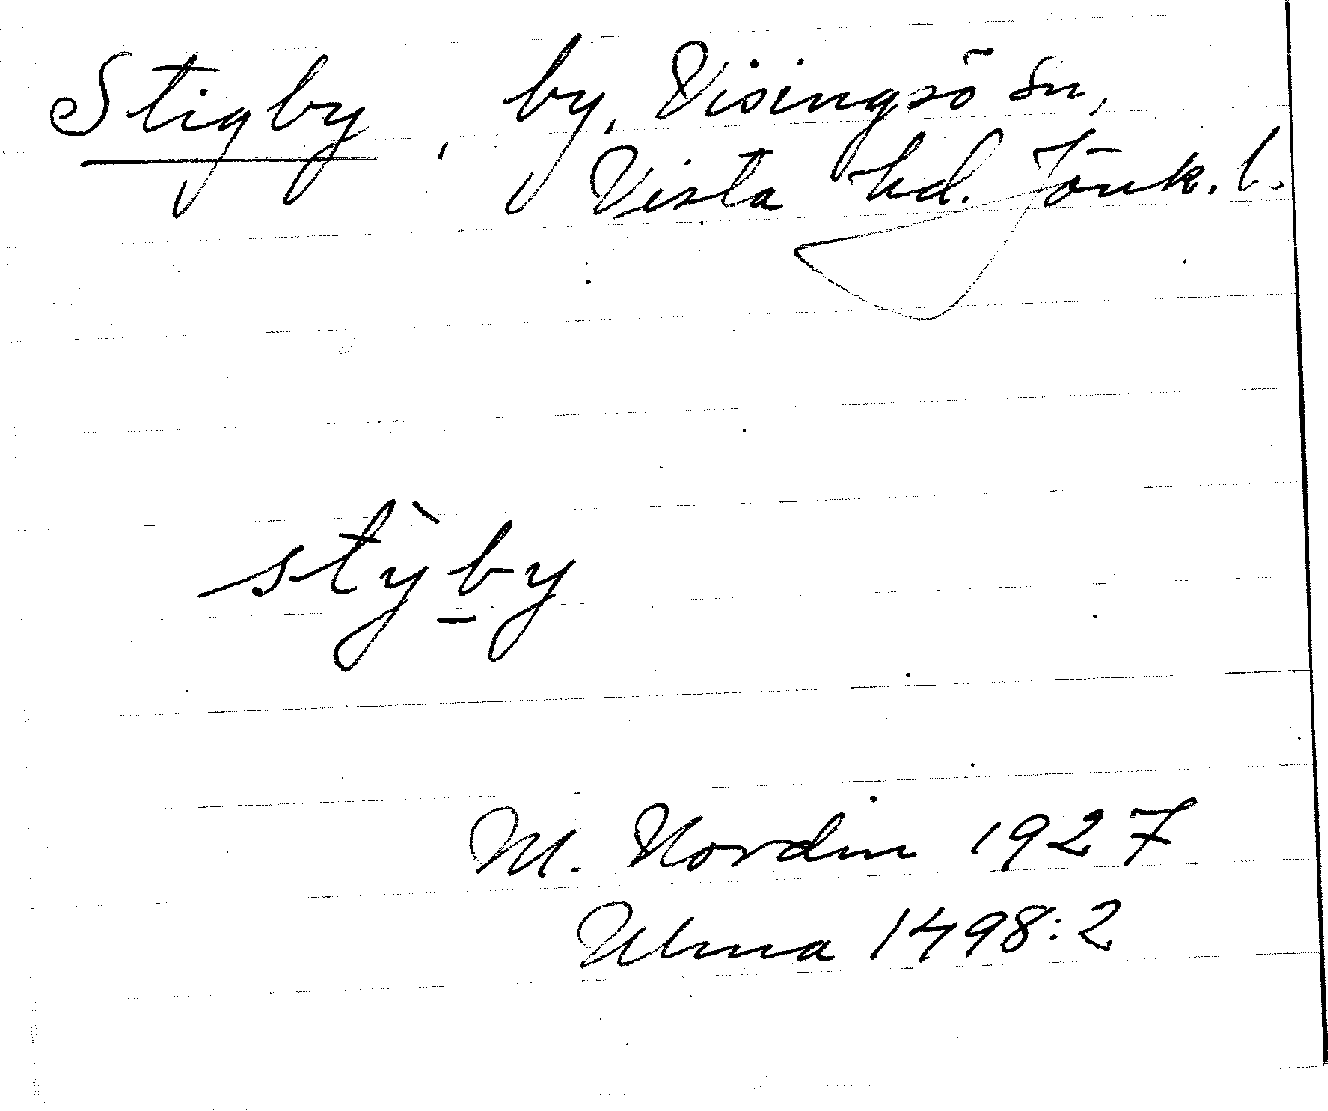 Stigby, by, Visingsö sn,
Vista hd. Jönk. l.
stỳby
M. Nordin 1927
Ulma 1498:2